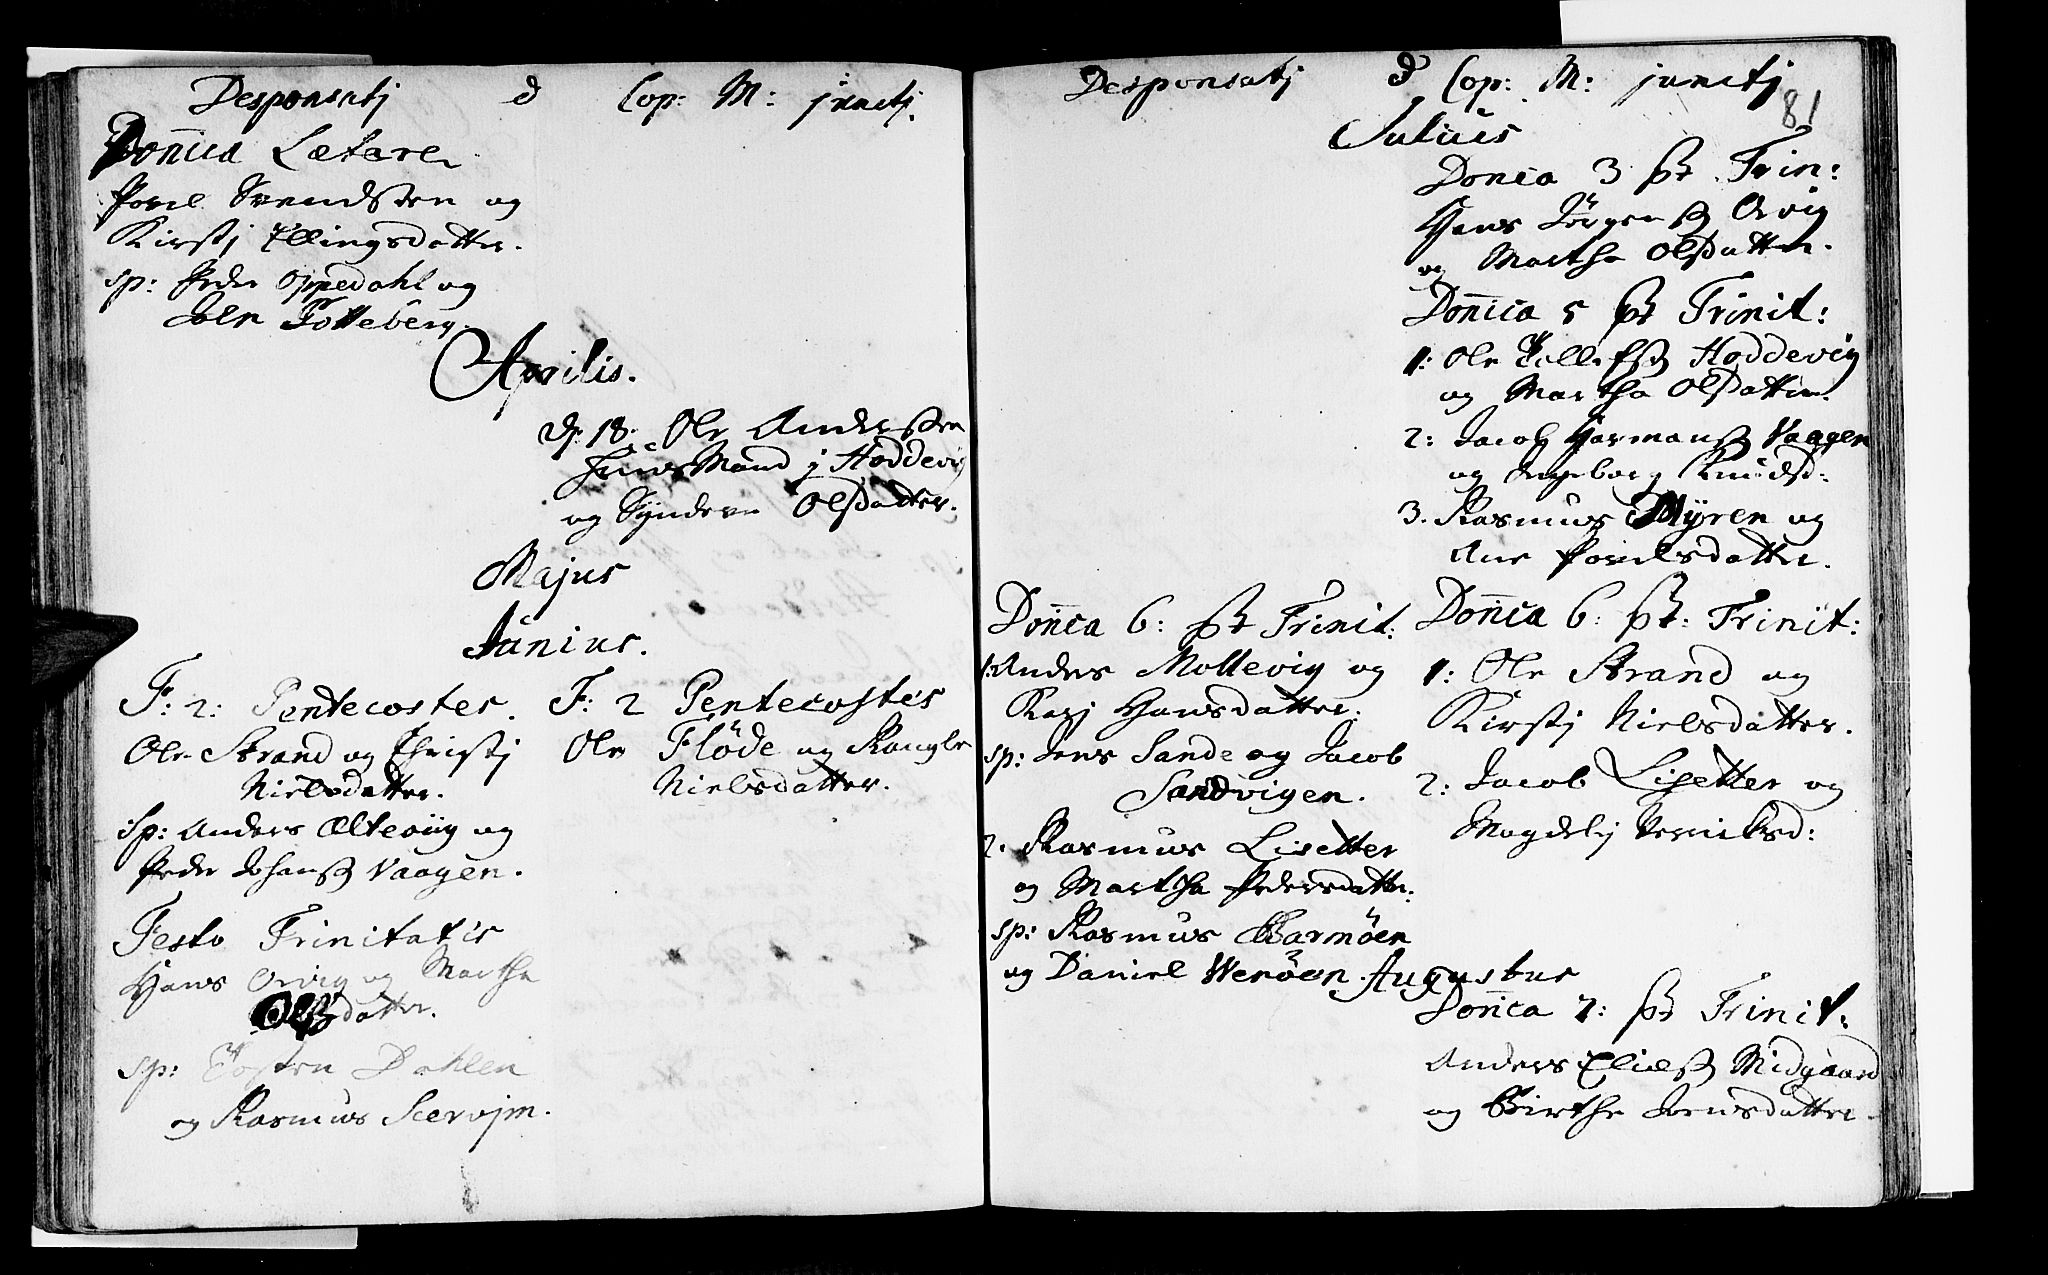 Desponsatj & Cop: M: junctj.
Dom̄ica Lætare
Povel Svendsen og
Kirstj Ellingsdatter.
sp: Peder Oppedahl og
Totteberg.
Aprilis.
d. 18. Ole Andersen
Huusmand j Hoddevig
og Synneve Olsdatter.
Majus
Junius.
F: 2: Pentecostes.
Ole Strand og Christj
Nielsdatter.
Sp: Anders Ælteviig og
Peder Johanss Vaagen.
Festo Trinitatis
Hans Orvig og Marthe
Olsdatter.
sp: Josten Dahlen
og Rasmus Scorvjm.
F: 2 Pentecostes
Ole Flöde og Rangle
Nielsdatter.
Desponsatj & Cop: M: junctj
81
Julius
Don̄ca 3 pt Trin:
Hans Jörgenss Orvig
og Martha Olsdatter.
Don̄ica 5 pt Trinit:
1: Ole Tollefss Hoddevig
og Martha Olsdatter.
2: Jacob Harmanss Vaagen
og Ingeborg Knudsd:
3. Rasmus Myren og
Ane Povelsdatter.
Don̄ca 6: pt Trinit:
1: Anders Mollevig og
Karj Hansdatter.
sp: Jens Sande og Jacob
Sandvigen.
2. Rasmus Lisetter
og Martha Pedersdatter.
sp: Rasmus Barmöen
og Daniel Weröen.
Don̄ica 6: pt: Trinit:
1: Ole Strand og
Kirstj Nielsdatter.
2: Jacob Lisetter og
Magdelj
Augustus
Don̄ca 7: pt Trinit:
Anders Eliess Midgaard
og Birthe Jensdatter.